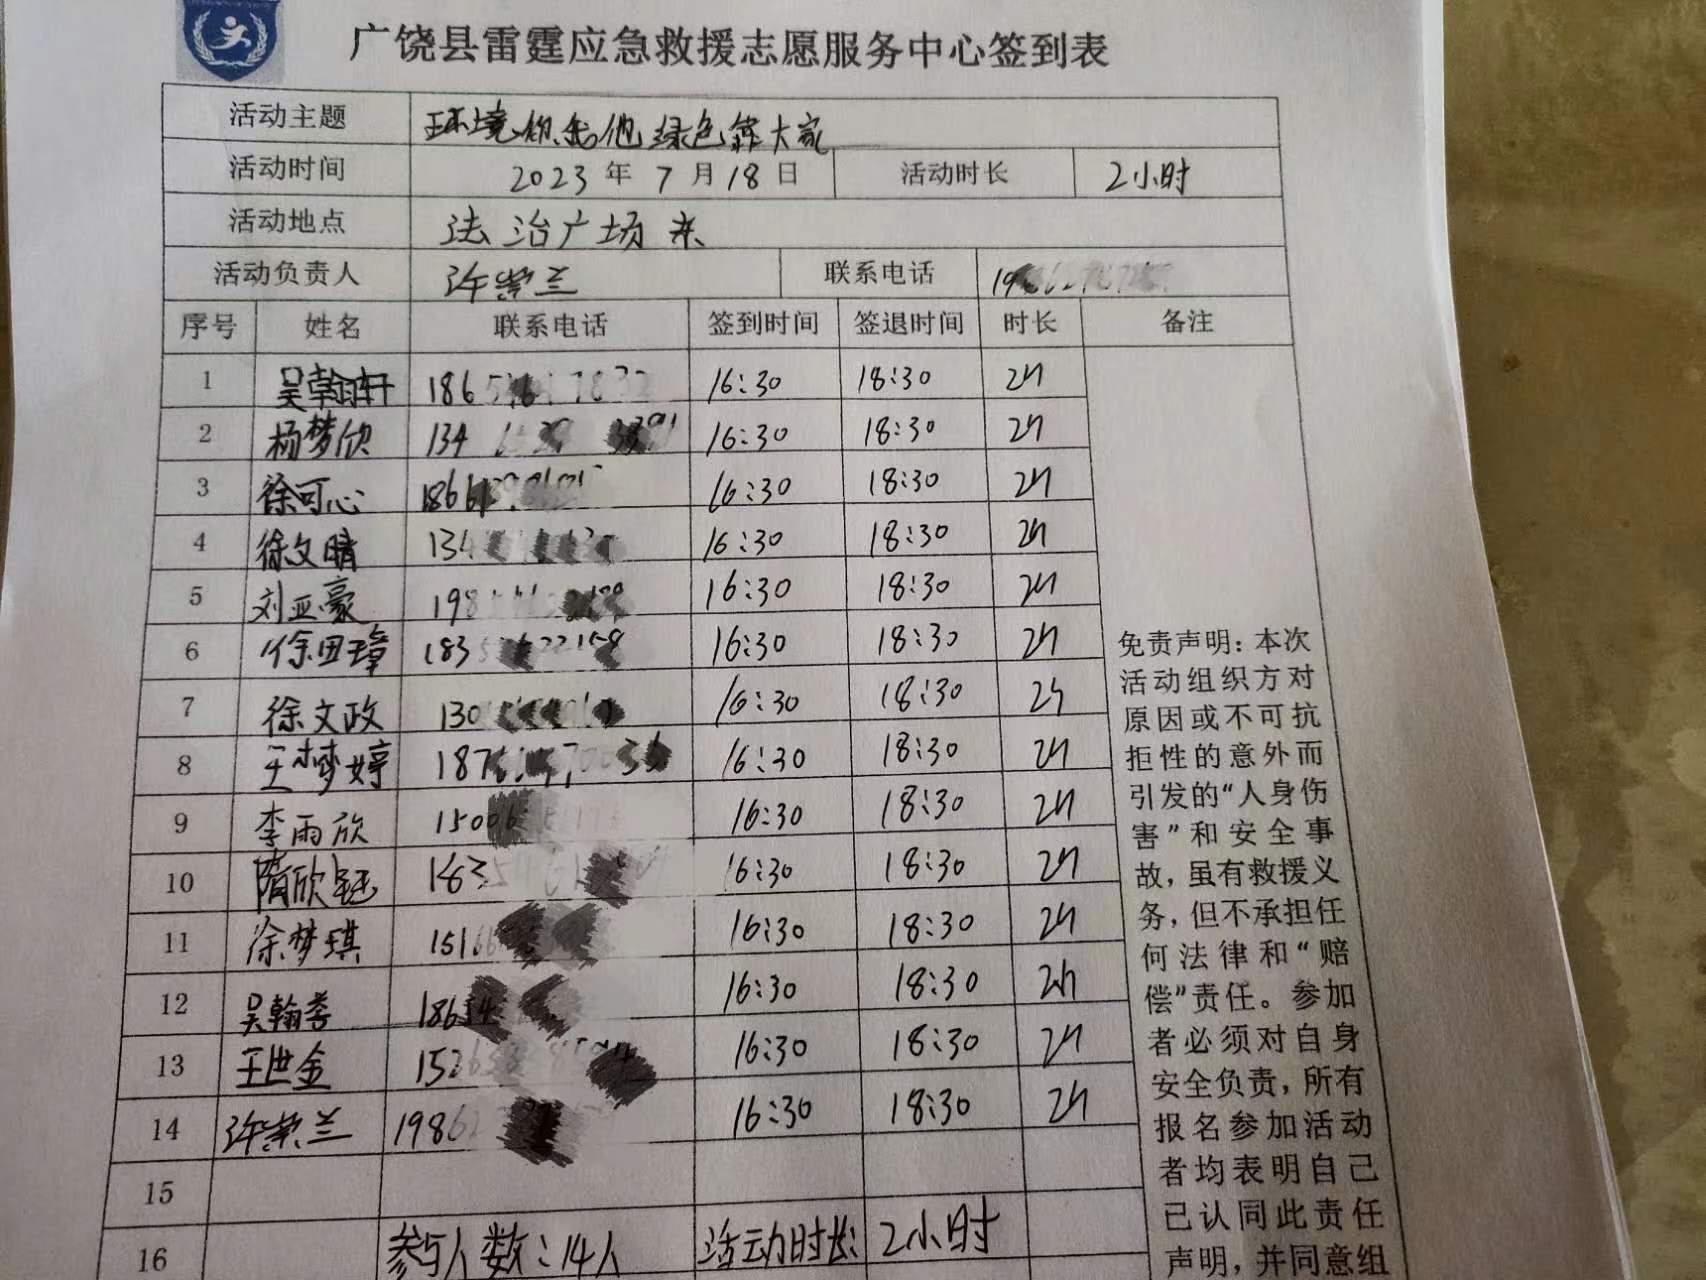 广饶县雷霆应急救援志愿服务中心签到表
活动主题 环境你我他 绿色靠大家
活动时间 2023年7月18日 活动时长 2小时
活动地点 法治广场东
活动负责人 许崇兰 联系电话
序号 姓名 联系电话 签到时间 签退时间 时长 备注
1 吴翰轩 16:30 18:30 2h
2 杨梦欣 16:30 18:30 2h
3 徐可心 16:30 18:30 2h
4 徐文晴 16:30 18:30 2h
5 刘亚豪 16:30 18:30 2h
6 徐田璋 16:30 18:30 2h
7 徐文政 16:30 18:30 2h
8 王梦婷 16:30 18:30 2h
9 李雨欣 16:30 18:30 2h
10 隋欣钰 16:30 18:30 2h
11 徐梦琪 16:30 18:30 2h
12 吴翰 16:30 18:30 2h
13 王世金 16:30 18:30 2h
14 许崇兰 16:30 18:30 2h
15
16 参与人数：14人 活动时长：2小时
免责声明：本次
活动组织方对
原因或不可抗
拒性的意外而
引发的“人身伤
害”和安全事
故，虽有救援义
务，但不承担任
何法律和“赔
偿”责任。参加
者必须对自身
安全负责，所有
报名参加活动
者均表明自己
已认同此责任
声明，并同意组